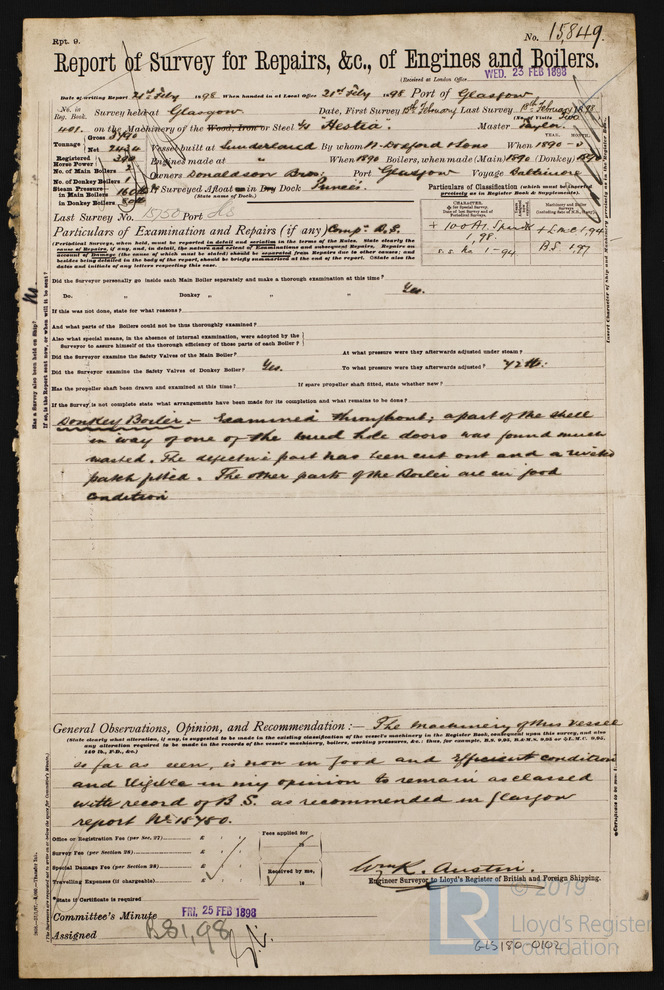 Rpt. 9.
No. 15,849.
Report of Survey for Repairs, &c., of Engines and Boilers.
(Received at London Office WED. 23 FEB 1898
Date of writing Report 21st Feby 1898 When handed in at Local Office 21st Feby 1898 Port of Glasgow
No. in Reg. Book. Survey held at Glasgow Date, First Survey 15th February Last Survey 18th February 1898
401. on the Machinery of the Wood, Iron or Steel Hestia Master Taylor
Tonnage Gross 3790
Net 2434 Vessel built at Sunderland By whom W. Doxford & Sons When 1890
Registered Horse Power 290 Engines made at " When 1890 Boilers, when made (Main) 1890 (Donkey) 1890
No. of Main Boilers 2
No. of Donkey Boilers 1 Owners Donaldson Bros. Port Glasgow Voyage Baltimore
Steam Pressure in Main Boilers 160 lb If Surveyed Afloat or in Dry Dock Princes
in Donkey Boilers 80 lb (State name of Dock.)
Particulars of Classification (which must be inserted precisely as in Register Book & Supplements).
Last Survey No. 15750 Port
+ 100 A1. Spar dk 1,98.
s.s. No 1-94
+ L.M.C. 1,94
B.S. 1,97
Particulars of Examination and Repairs (if any) Comp. B.S.
(Periodical Surveys, when held, must be reported in detail and seriatim in the terms of the Rules. State clearly the
cause of Repairs, if any, and, in detail, the nature and extent of Examinations and subsequent Repairs. Repairs on
account of Damage (the cause of which must be stated) should be separated from Repairs due to other causes; and
besides being detailed in the body of the report, should be briefly summarised at the end of the report. State also the
dates and initials of any letters respecting this case.
Did the Surveyor personally go inside each Main Boiler separately and make a thorough examination at this time?
Do. " Donkey " " " Yes.
If this was not done, state for what reasons?
And what parts of the Boilers could not be thus thoroughly examined?
Also what special means, in the absence of internal examination, were adopted by the
Surveyor to assure himself of the thorough efficiency of those parts of each Boiler?
Did the Surveyor examine the Safety Valves of the Main Boiler? At what pressure were they afterwards adjusted under steam?
Did the Surveyor examine the Safety Valves of Donkey Boiler? Yes. To what pressure were they afterwards adjusted? 72 lb.
Has the propeller shaft been drawn and examined at this time? If spare propeller shaft fitted, state whether new?
If the Survey is not complete state what arrangements have been made for its completion and what remains to be done?
Donkey Boiler:- Examined throughout; a part of the shell
in way of one of the mud hole doors was found much
wasted. The defective part has been cut out and a riveted
patch fitted. The other parts of the Boiler are in good
condition
General Observations, Opinion, and Recommendation:- The machinery of this vessel
(State clearly what alteration, if any, is suggested to be made in the existing classification of the vessel's machinery in the Register Book, consequent upon this survey, and also
any alteration required to be made in the records of the vessel's machinery, boilers, working pressures, &c.: thus, for example, B.S. 9,95, B.&M.S. 9,95 or L.M.C. 9,95,
140 lb., F.D., &c.)
so far as seen, is now in good and efficient condition
and eligible in my opinion to remain as classed
with record of B.S. as recommended in Glasgow
report No 15750.
Office or Registration Fee (per Sec. 27) £
Survey Fee (per Section 28) £
Special Damage Fee (per Section 28) £
Travelling Expenses (if chargeable) £
Fees applied for
18
Received by me,
18
State if Certificate is required
Wm R. Austin.
Engineer Surveyor to Lloyd's Register of British and Foreign Shipping.
Committee's Minute FRI. 25 FEB 1898
Assigned BS1,98
© 2019
LR
Lloyd's Register
Foundation
GLS180-0102